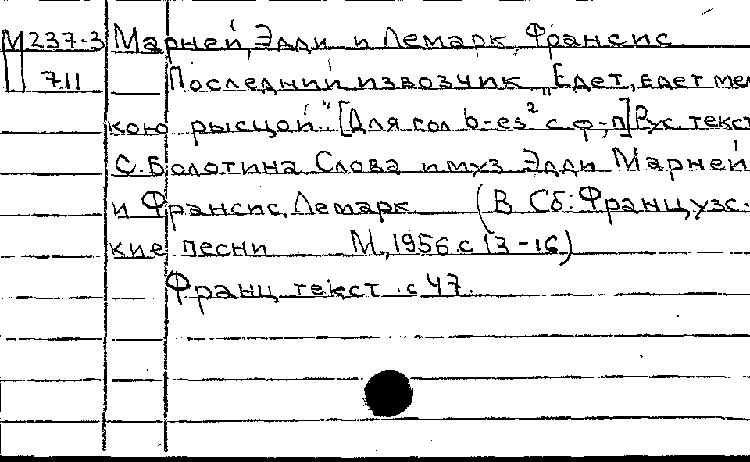 М 237-3 Марней, Эдди и Лемарк, Франсис
711 Последний извозчик „Едет, едет мел
кою рысцой". [Для гол b-es² с ф-п] Рус. текст
С. Болотина Слова и муз Эдди Марней
и Франсис, Лемарк (В Сб: Французс-
кие песни М., 1956 с 13-16)
Франц текст с 47.